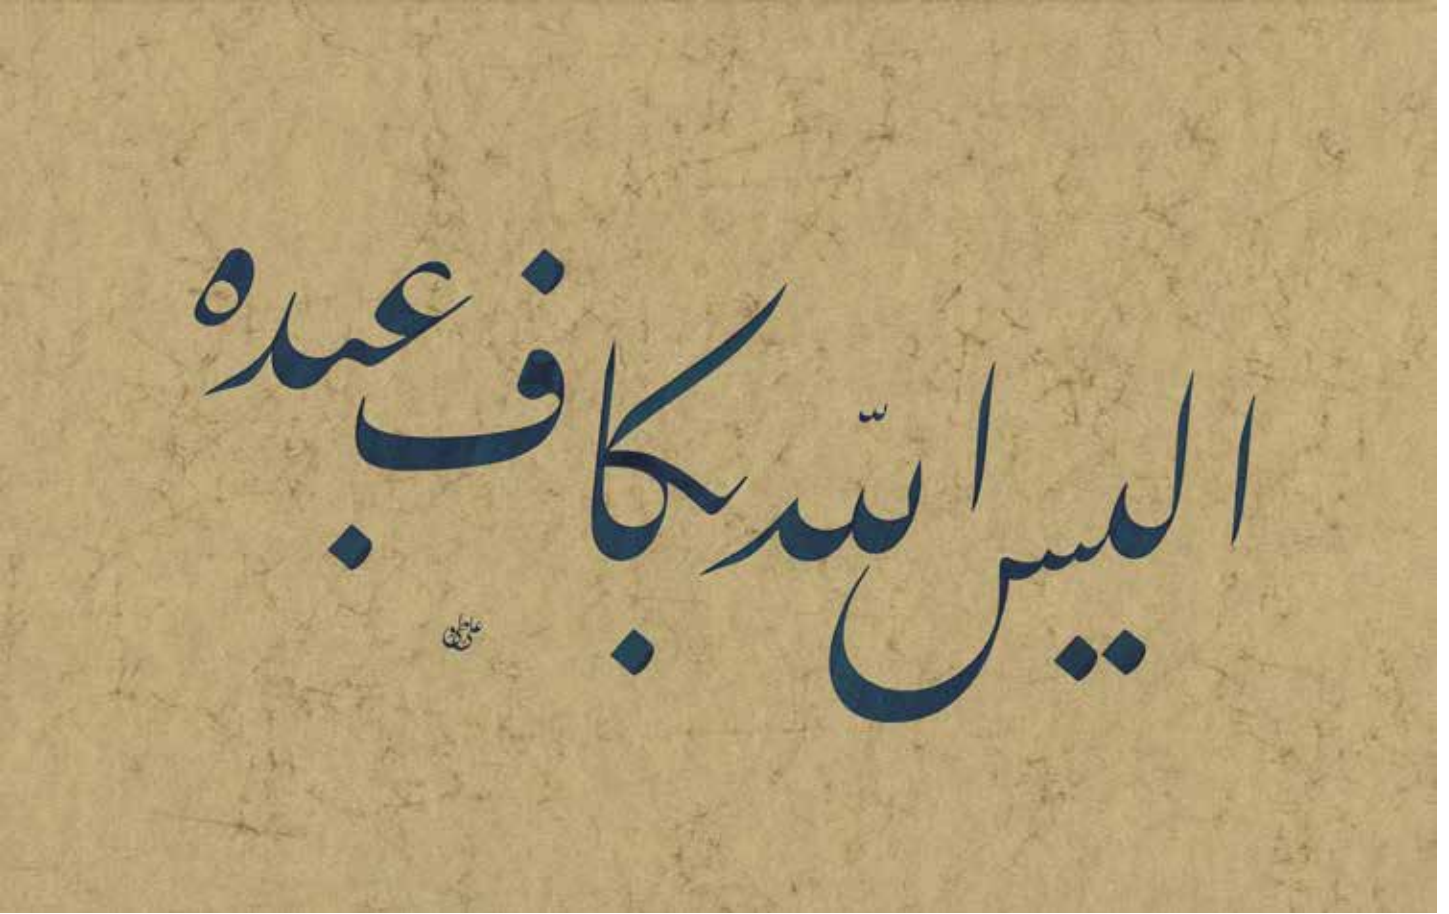 الیس اللّه بکاف عبده